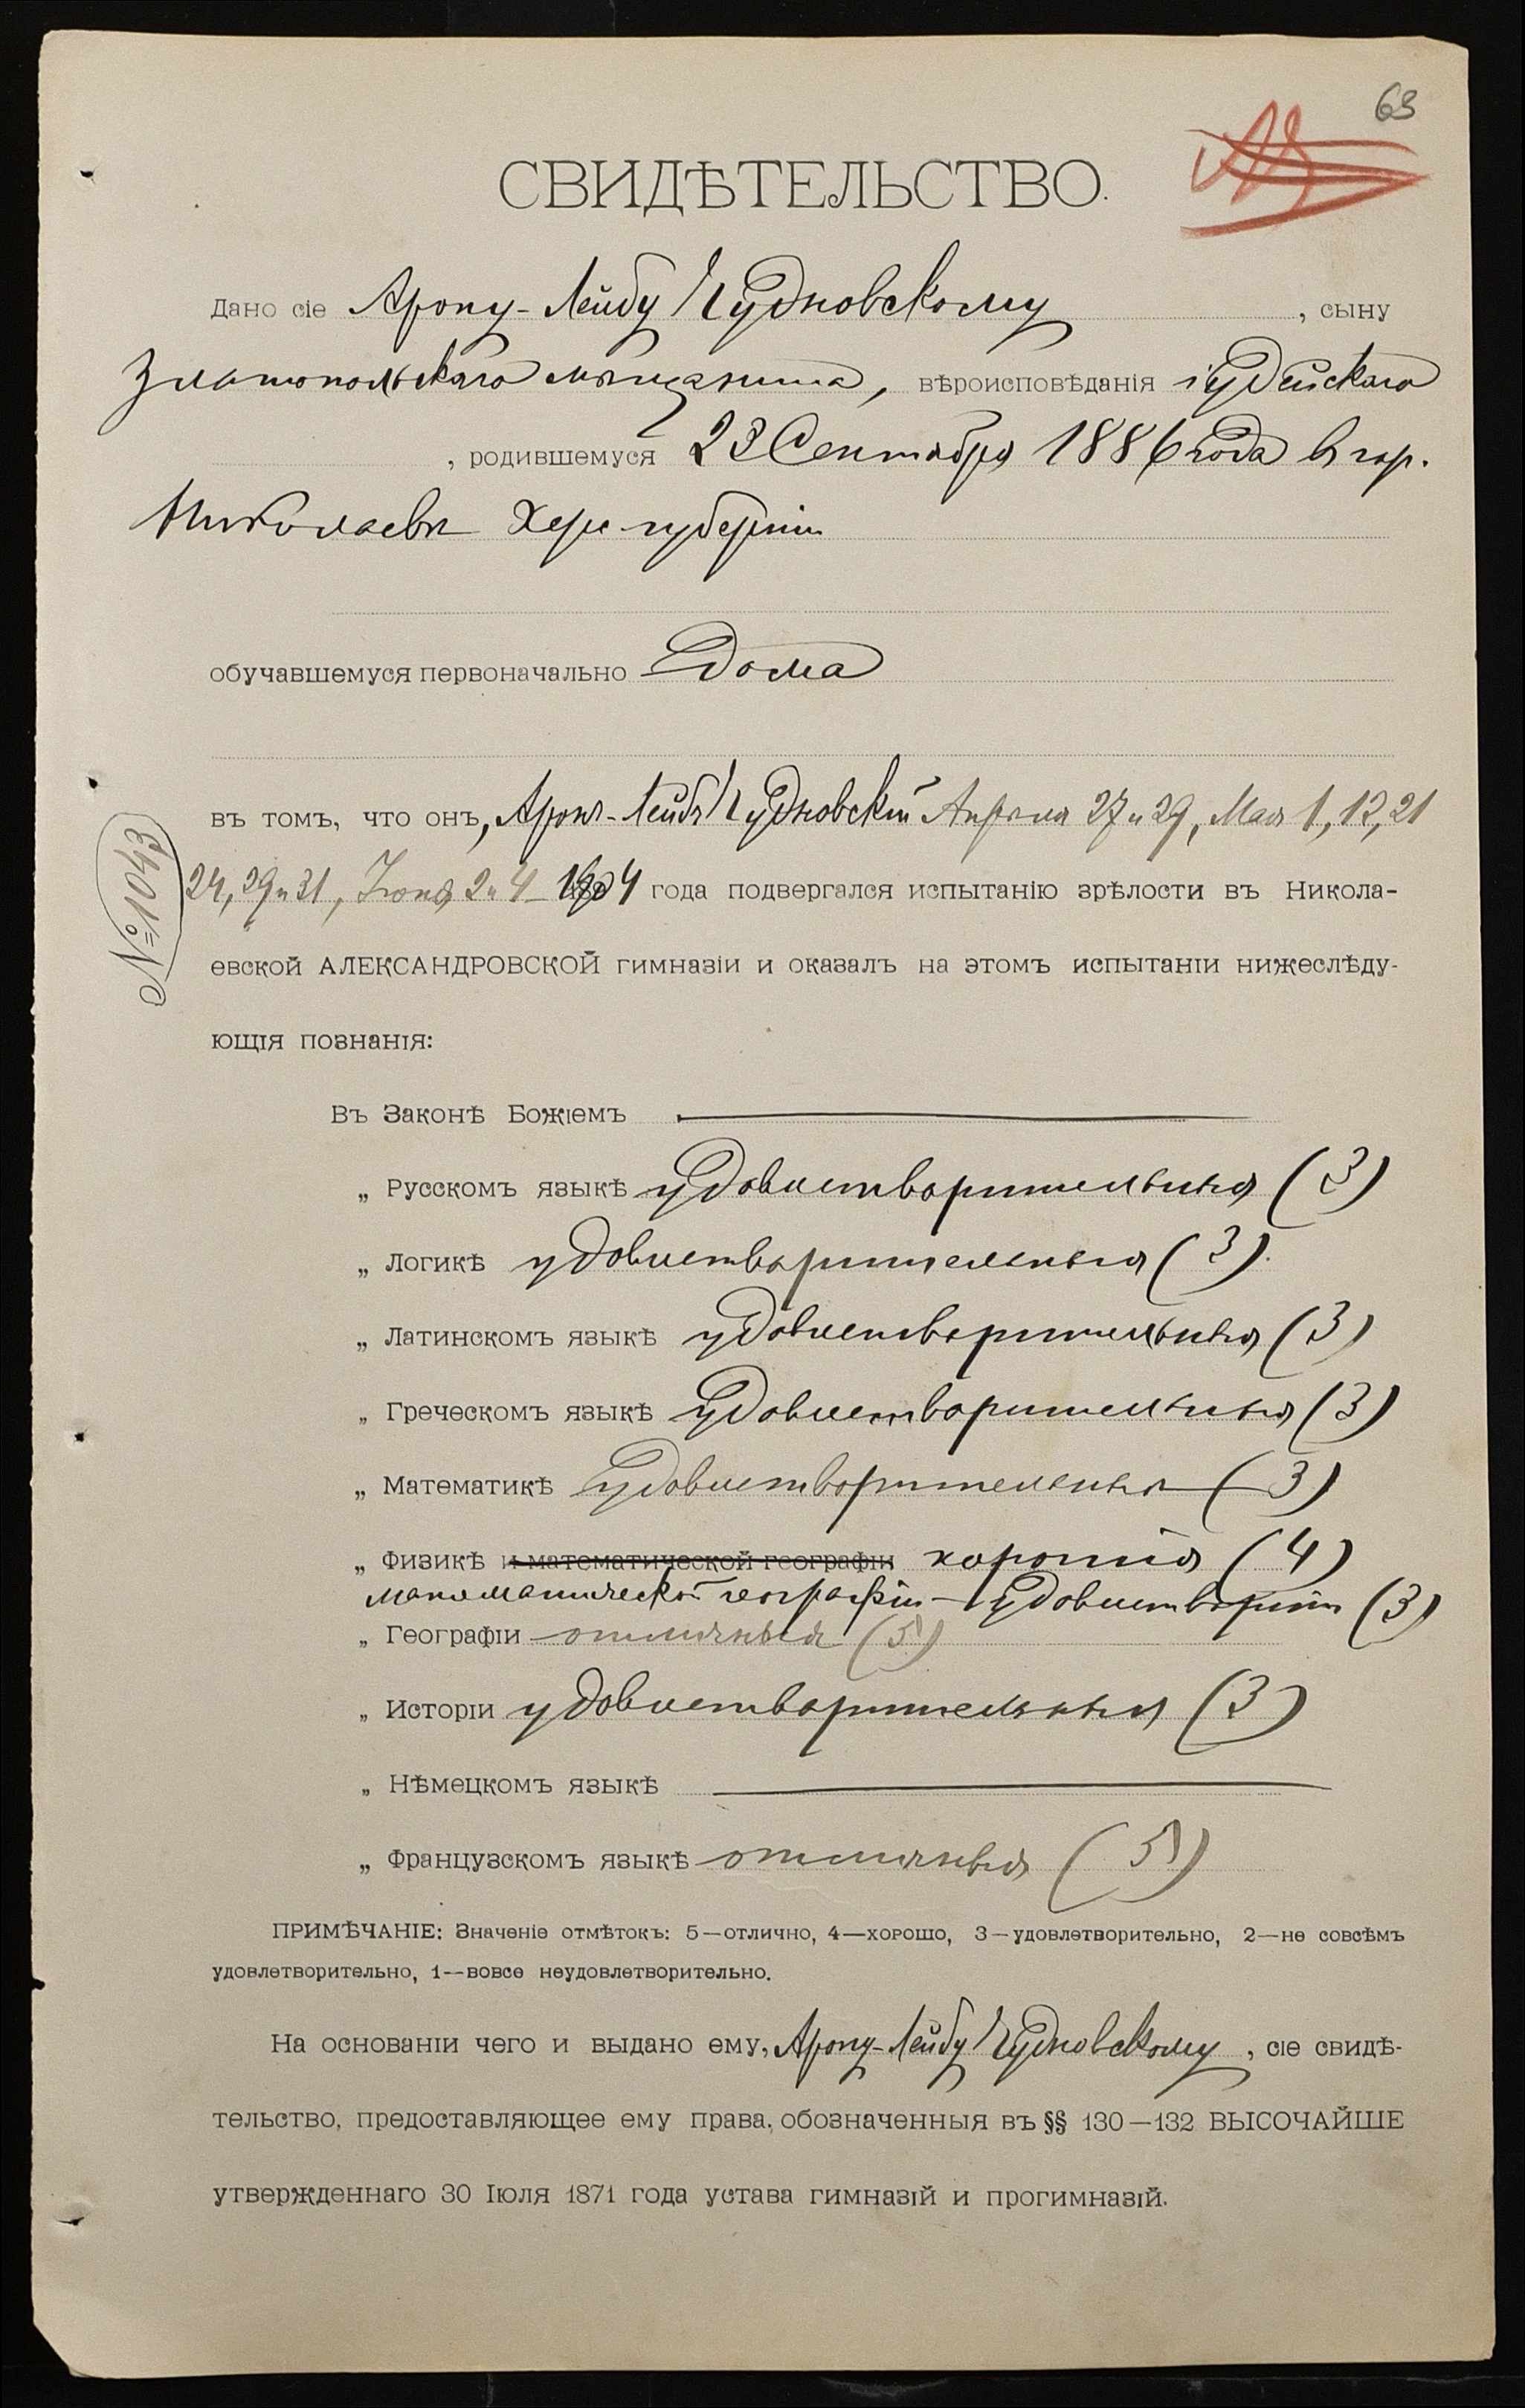 63
СВИДѢТЕЛЬСТВО.
Дано сіе Арону-Лейбу Чудновскому, сыну
Златопольскаго мѣщанина, вѣроисповѣданія іудейскаго
, родившемуся 23 Сентября 1886 года въ гор.
Николаевѣ Херс губерніи
обучавшемуся первоначально Дома
въ томъ, что онъ, Аронъ-Лейбъ Чудновскій Апрѣля 27 и 29, Мая 1, 12, 21
24, 29 и 31, Іюня 2 и 4 1904 года подвергался испытанію зрѣлости въ Никола-
№ 1043
евской АЛЕКСАНДРОВСКОЙ гимназіи и оказалъ на этомъ испытаніи нижеслѣду-
ющія познанія:
Въ Законѣ Божіемъ
„ Русскомъ языкѣ удовлетворительныя (3)
„ Логикѣ удовлетворительныя (3).
„ Латинскомъ языкѣ удовлетворительныя (3)
„ Греческомъ языкѣ удовлетворительныя (3)
„ Математикѣ удовлетворительныя (3)
„ Физикѣ и математической географіи хорошія (4)
математической географіи - удовлетворит (3)
„ Географіи отличныя (5)
„ Исторіи удовлетворительныя (3)
„ Нѣмецкомъ языкѣ
„ Французскомъ языкѣ отличныя (5)
ПРИМѢЧАНІЕ: Значеніе отмѣтокъ: 5—отлично, 4—хорошо, 3—удовлетворительно, 2—не совсѣмъ
удовлетворительно, 1—вовсе неудовлетворительно.
На основаніи чего и выдано ему, Арону-Лейбу Чудновскому, сіе свидѣ-
тельство, предоставляющее ему права, обозначенныя въ §§ 130—132 ВЫСОЧАЙШЕ
утвержденнаго 30 Іюля 1871 года устава гимназій и прогимназій.